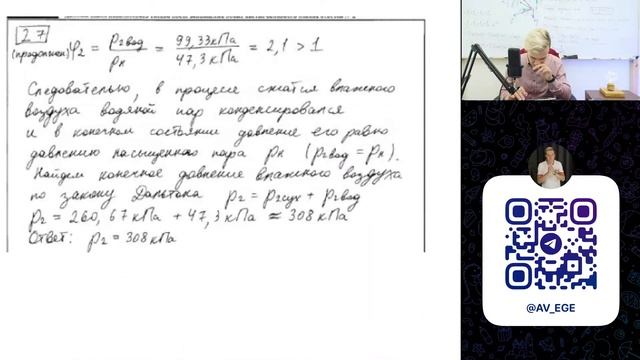 27
(продолжен) φ₂ = p₂вод / pн = 99,33кПа / 47,3кПа = 2,1 > 1
Следовательно, в процессе сжатия влажного
воздуха водяной пар конденсировался
и в конечном состоянии давление его равно
давлению насыщенного пара pн (p₂вод = pн).
Найдем конечное давление влажного воздуха
по закону Дальтона p₂ = p₂сух + p₂вод
p₂ = 260,67кПа + 47,3кПа ≈ 308кПа
Ответ: p₂ = 308кПа
@AV_EGE